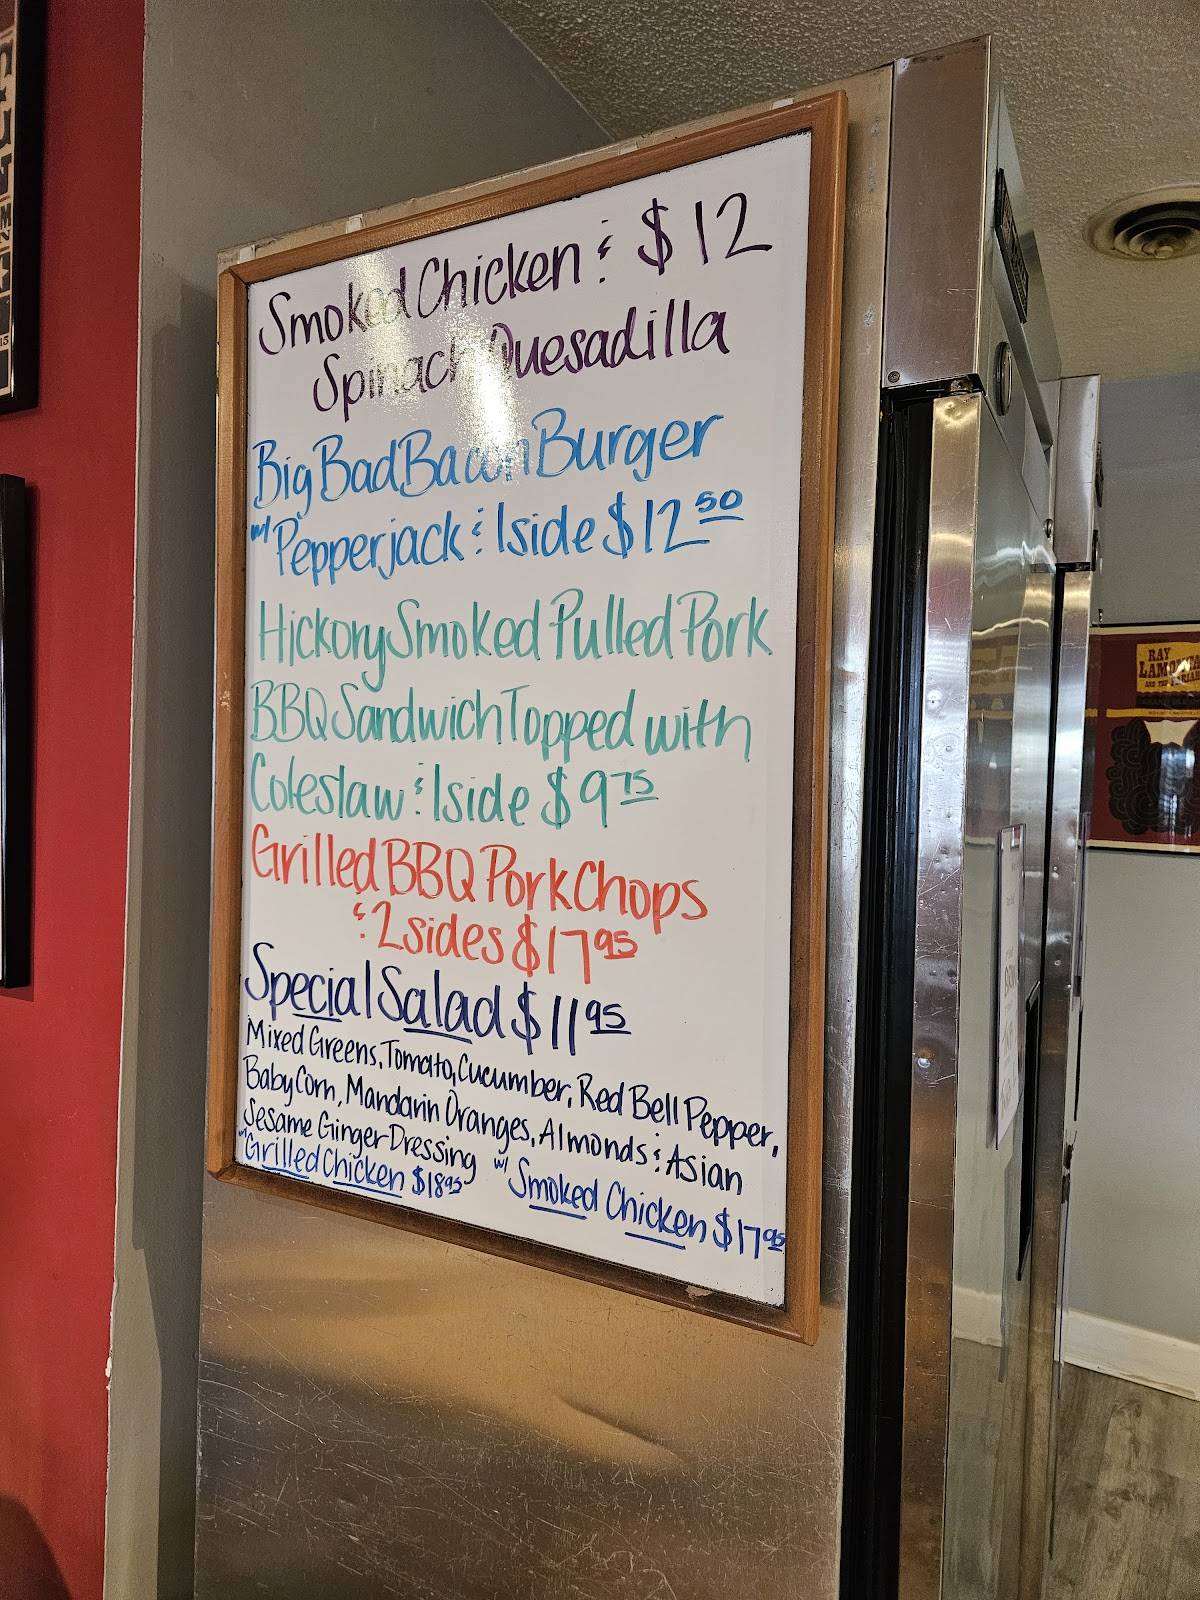 Smoked Chicken & $12
Spinach Quesadilla
Big Bad Bacon Burger
w/ Pepperjack & 1 side $12 50
Hickory Smoked Pulled Pork
BBQ Sandwich Topped with
Coleslaw & 1 side $9 75
Grilled BBQ Pork Chops
& 2 sides $17 95
Special Salad $11 95
Mixed Greens, Tomato, Cucumber, Red Bell Pepper,
Baby Corn, Mandarin Oranges, Almonds & Asian
Sesame Ginger Dressing
w/ Grilled Chicken $18 95 w/ Smoked Chicken $17 95
RAY